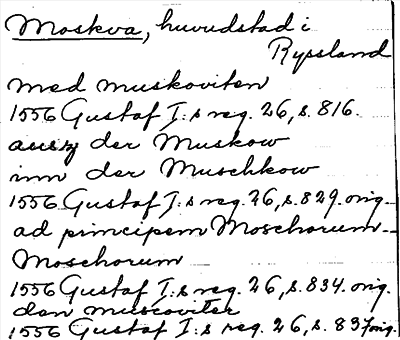 Moskva, huvudstad i
Ryssland
med muskoviten
1556 Gustaf I:s reg. 26, s. 816.
ausz der Muskow
inn der Muschkow
1556 Gustaf I:s reg. 26, s. 829. orig.
ad principem Moschorum
Moschorum
1556 Gustaf I:s reg. 26, s. 834. orig.
dan muscoviter
1556 Gustaf I:s reg. 26, s. 837 orig.